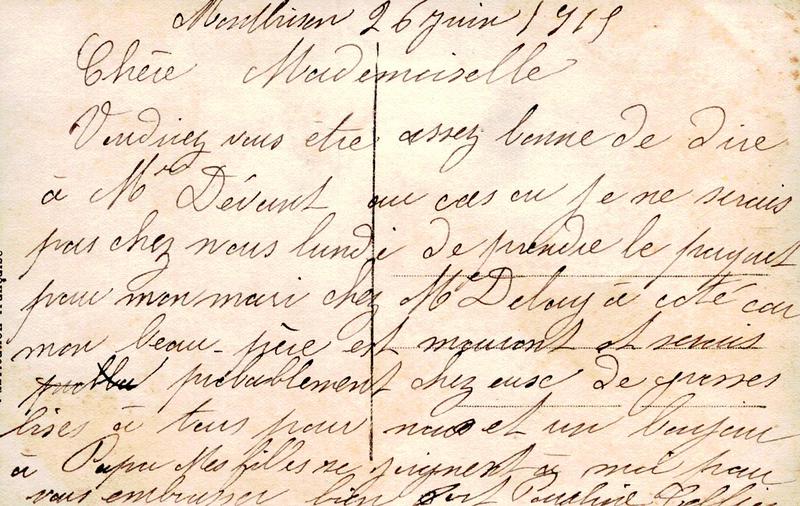 Montbrison 26 Juin 1915
Chère Mademoiselle
Voudriez vous être assez bonne de dire
à Mr Dévant au cas ou je ne serais
pas chez nous lundi de prendre le paquet
pour mon mari chez Me Delay à coté car
mon beau-père est mourant et serais
probablement chez eux de grosses
bises à tous pour nous et un bonjour
à Papa Mes filles se joignent à moi pour
vous embrasser bien fort Pauline